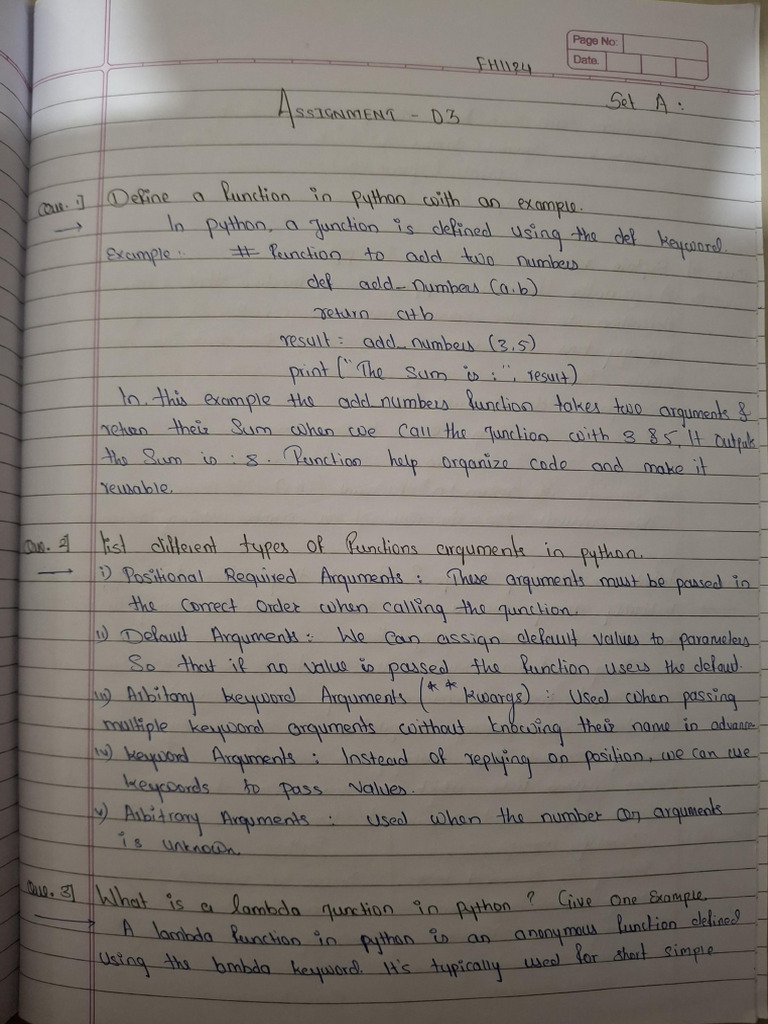 Page No:
Date.
FH1124
Set A:
ASSIGNMENT - 03
Que. 1] Define a function in python with an example.
→ In python, a function is defined using the def keyword.
Example:- # Function to add two numbers
def add_numbers (a.b)
return a+b
result: add_numbers (3,5)
print ("The Sum is :", result)
In this example the add_numbers function takes two arguments &
return their Sum when we Call the function with 3 & 5, It outputs
the Sum is : 8. Function help organize code and make it
reusable.
Que. 2] List different types of functions arguments in python.
→ i) Positional Required Arguments : These arguments must be passed in
the Correct Order when calling the function.
ii) Default Arguments : We can assign default values to parameters
So that if no value is passed the function users the defaut.
iii) Arbitary keyword Arguments (** kwargs) : Used when passing
multiple keyword arguments without knowing their name in advance
iv) Keyword Arguments : Instead of replying on position, we can use
keywords to pass values.
v) Arbitrary Arguments : used when the number on arguments
is unknown
Que. 3] What is a lambda function in Python ? Give one Example.
→ A lambda function in python is an anonymous function defined
using the lambda keyword. It's typically used for short simple